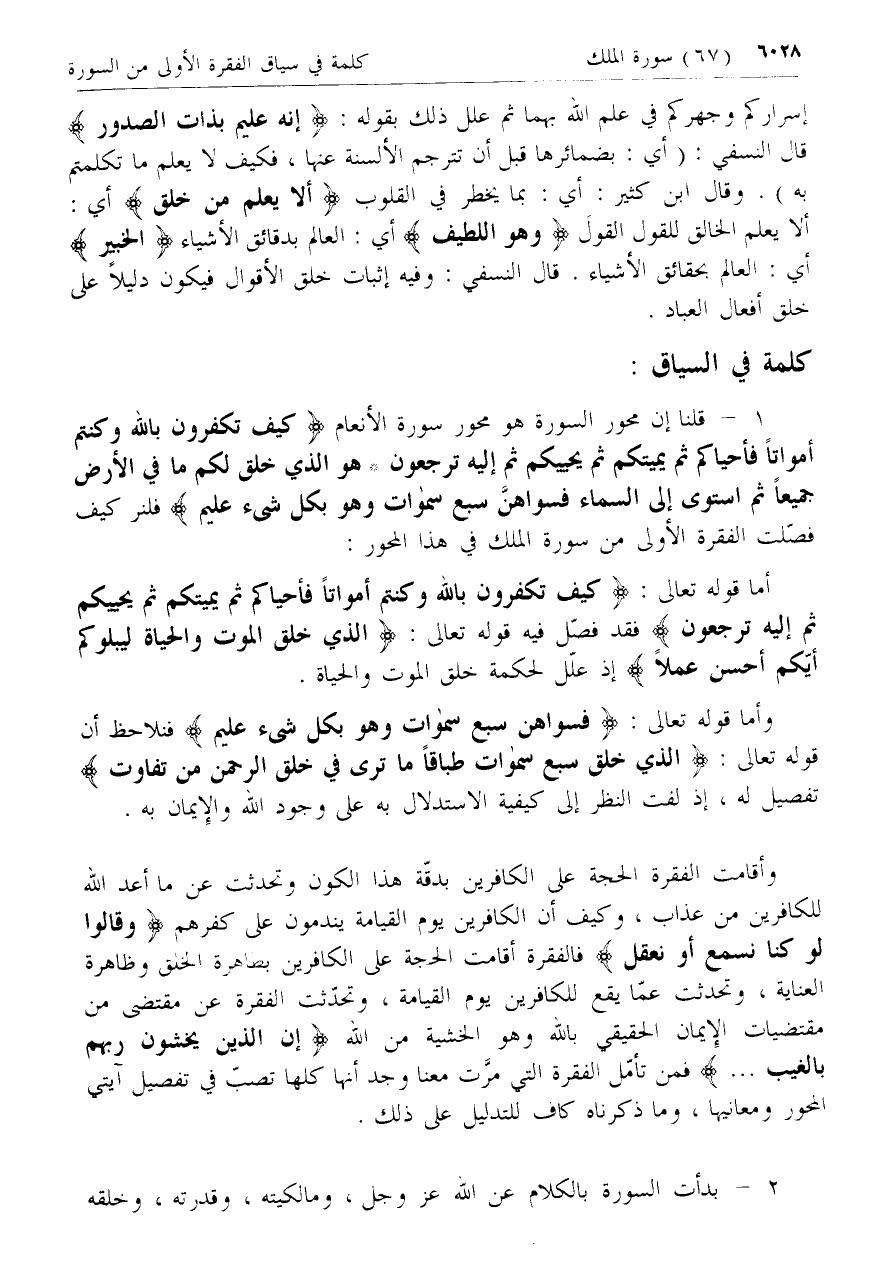 ٦٠٢٨ (٦٧) سورة الملك كلمة في سياق الفقرة الأولى من السورة
إسراركم وجهركم في علم الله بهما ثم علل ذلك بقوله : ﴿ إنه عليم بذات الصدور ﴾
قال النسفي : ( أي : بضمائرها قبل أن تترجم الألسنة عنها ، فكيف لا يعلم ما تكلمتم
به ) . وقال ابن كثير : أي : بما يخطر في القلوب ﴿ ألا يعلم من خلق ﴾ أي :
ألا يعلم الخالق للقول القولَ ﴿ وهو اللطيف ﴾ أي : العالم بدقائق الأشياء ﴿ الخبير ﴾
أي : العالم بحقائق الأشياء . قال النسفي : وفيه إثبات خلق الأقوال فيكون دليلاً على
خلق أفعال العباد .
كلمة في السياق :
١ – قلنا إن محور السورة هو محور سورة الأنعام ﴿ كيف تكفرون بالله وكنتم
أمواتاً فأحياكم ثم يميتكم ثم يحييكم ثم إليه ترجعون * هو الذي خلق لكم ما في الأرض
جميعاً ثم استوى إلى السماء فسواهنَّ سبع سمٰوات وهو بكل شيء عليم ﴾ فلنر كيف
فصّلت الفقرة الأولى من سورة الملك في هذا المحور :
أما قوله تعالى : ﴿ كيف تكفرون بالله وكنتم أمواتاً فأحياكم ثم يميتكم ثم يحييكم
ثم إليه ترجعون ﴾ فقد فصّل فيه قوله تعالى : ﴿ الذي خلق الموت والحياة ليبلوكم
أيّكم أحسن عملاً ﴾ إذ علّل لحكمة خلق الموت والحياة .
وأما قوله تعالى : ﴿ فسواهن سبع سمٰوات وهو بكل شيء عليم ﴾ فنلاحظ أن
قوله تعالى : ﴿ الذي خلق سبع سمٰوات طباقاً ما ترى في خلق الرحمن من تفاوت ﴾
تفصيل له ، إذ لفت النظر إلى كيفية الاستدلال به على وجود الله والإيمان به .
وأقامت الفقرة الحجة على الكافرين بدقّة هذا الكون وتحدثت عن ما أعد الله
للكافرين من عذاب ، وكيف أن الكافرين يوم القيامة يندمون على كفرهم ﴿ وقالوا
لو كنا نسمع أو نعقل ﴾ فالفقرة أقامت الحجة على الكافرين بظاهرة الخلق وظاهرة
العناية ، وتحدثت عمّا يقع للكافرين يوم القيامة ، وتحدّثت الفقرة عن مقتضى من
مقتضيات الإيمان الحقيقي بالله وهو الخشية من الله ﴿ إن الذين يخشون ربهم
بالغيب ... ﴾ فمن تأمّل الفقرة التي مرَّت معنا وجد أنها كلها تصبّ في تفصيل آيتي
المحور ومعانيها ، وما ذكرناه كاف للتدليل على ذلك .
٢ – بدأت السورة بالكلام عن الله عز وجل ، ومالكيته ، وقدرته ، وخلقه